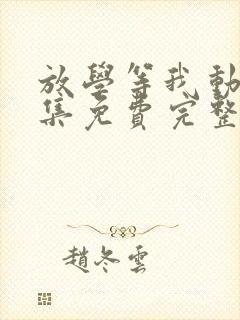 放學等我動
集免費完整
趙冬雲